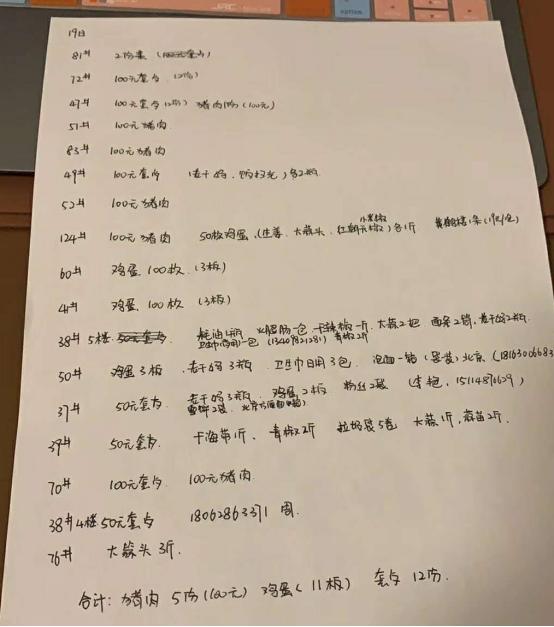 19日
81# 2份素 (100元套内)
72# 100元套内 (2份)
47# 100元套内 (2份) 猪肉1份 (100元)
51# 100元猪肉
83# 100元猪肉
49# 100元套内 (老干妈、 ) 各2瓶
52# 100元猪肉
124# 100元猪肉 50枚鸡蛋、(生姜、大蒜头、红朝天椒) 各1斤 黄鹤楼1条
小米椒
60# 鸡蛋100枚 (3板)
4# 鸡蛋100枚 (3板)
38# 5楼 50元套内 耗油4瓶 火腿肠一包 干辣椒一斤 大蒜2把 面条2筒, 老干妈2瓶
卫生巾 一包 (13407121281) 青椒2斤
50# 鸡蛋3板 老干妈3瓶 卫生巾日用3包 泡面一箱 (袋装) 北京 (18163006683
37# 50元套内 老干妈3瓶 鸡蛋2板 粉丝2袋 (李艳, 15114871629)
雪饼2袋
39# 50元套内 干海带1斤、青椒2斤 垃圾袋5卷 大蒜1斤, 蒜苗2斤
70# 100元套内 100元猪肉
38# 4楼 50元套内 18062863371 周
76# 大蒜头3斤
合计: 猪肉5份(100元) 鸡蛋(11板) 套内12份